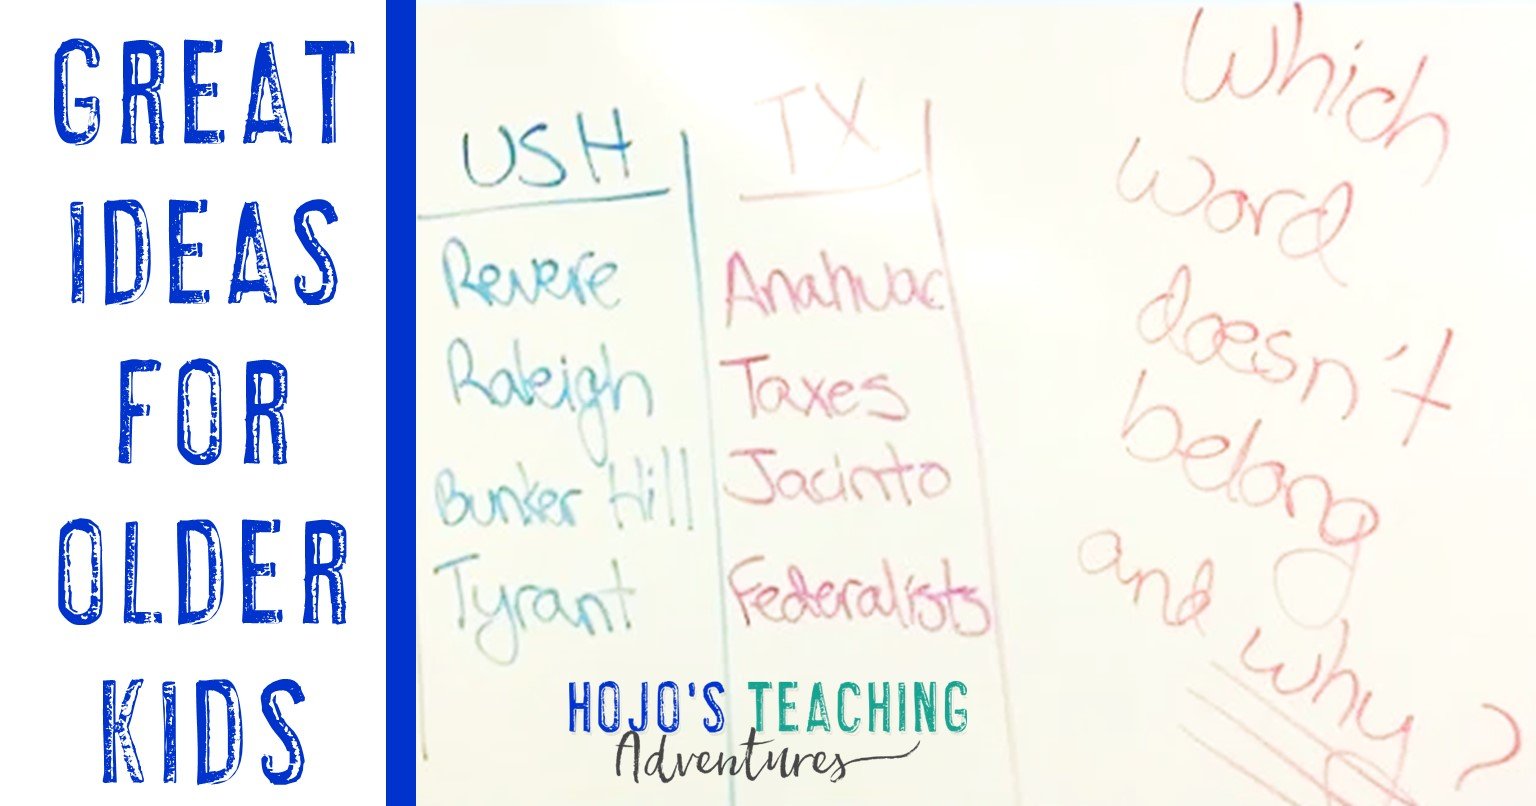 GREAT
IDEAS
FOR
OLDER
KIDS
USH
Revere
Raleigh
Bunker Hill
Tyrant
TX
Anahuac
Taxes
Jacinto
Federalists
Which
word
doesn't
belong
and
why?
HOJO'S TEACHING
Adventures